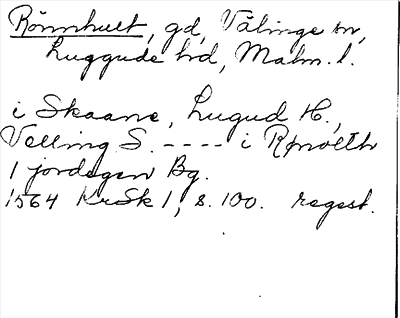 Rönnhult, gd, Välinge sn,
Luggude hd, Malm. l.
i Skaane, Lugud H.,
Velling S. ---- i Rønolth
1 jordegen Bg.
1564 KrSk 1, s. 100. regest.